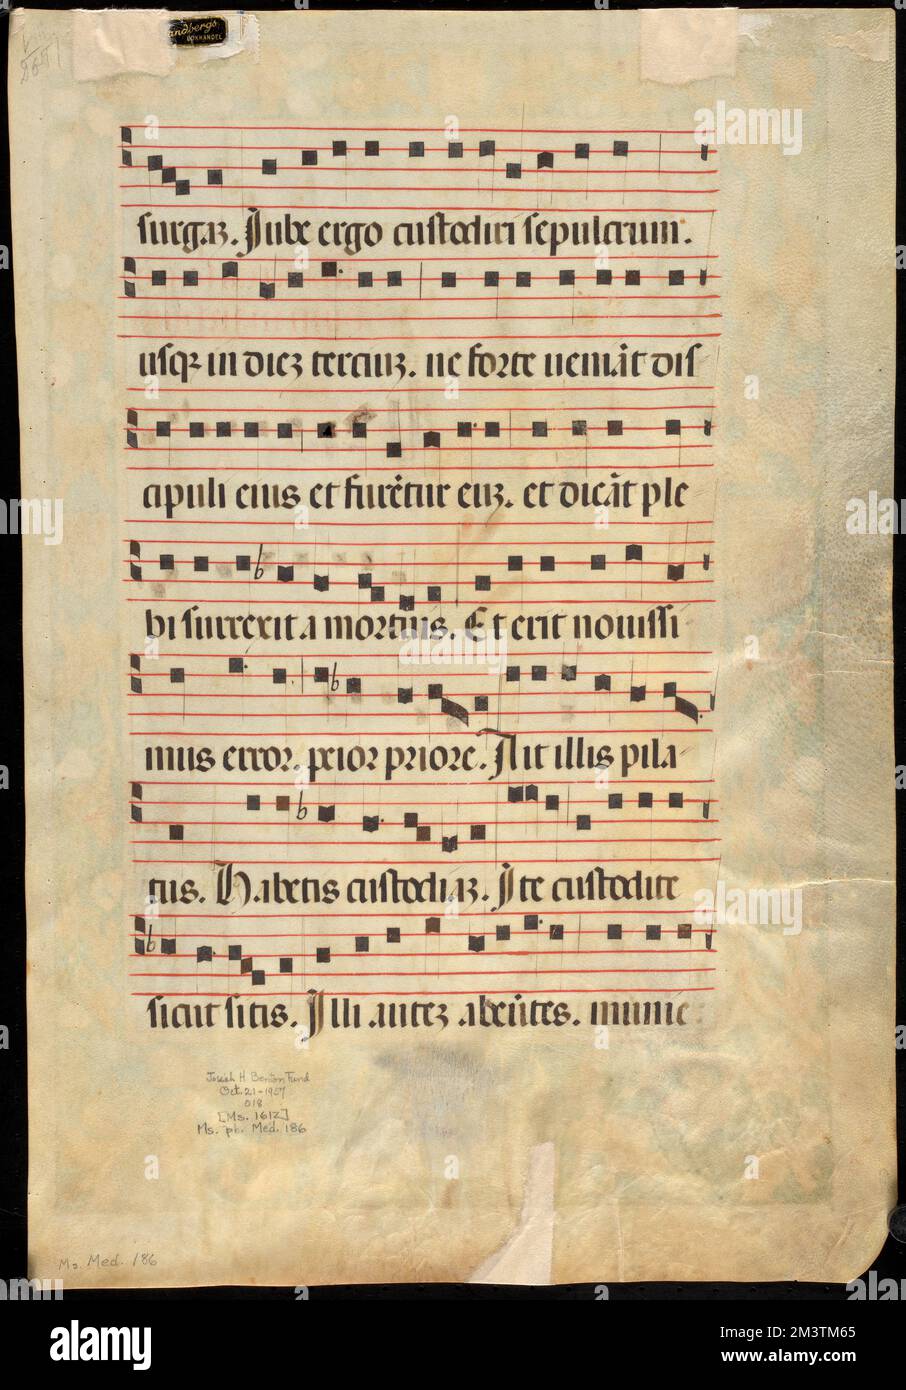 andbergs
BOKHANDEL
surgaʒ. Jube ergo custodiri sepulcrum.
usqʒ in dieʒ terciuʒ. ne forte ueniāt dis
cipuli eius et furētur euʒ. et dicāt ple
bi surrexit a mortuis. Et erit nouissi
mus error. peior priore. Ait illis pila
tus. Habetis custodiaʒ. Ite custodite
sicut sitis. Illi auteʒ abeūtes. munie
Josiah H. Benton Fund
Oct. 21-1957
018
[Ms. 1612]
Ms. pb. Med. 186
Ms. Med. 186
alamy
Image ID: 2M3TM65
www.alamy.com